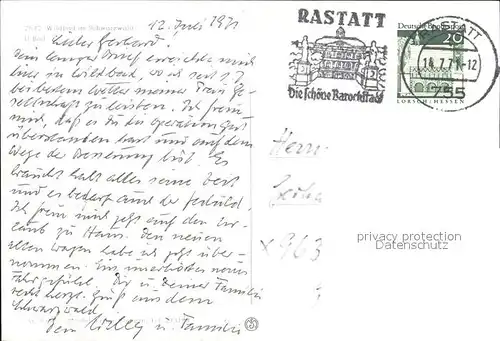 12. Juli 1971
Lieber Gerhard
Dein langer Brief erreichte mich
hier in Wildbad, wo ich seit 1.7.
bei
sellschaft zu leisten. Ich freue
mich, daß es Du die Operation gut
überstanden hast und auf dem
Wege der Besserung bist. Es
braucht halt alles seine Zeit
und es bedarf auch der Geduld.
Ich freue mich jetzt auf den Ur-
laub zu Haus. Den neuen
Wagen habe ich jetzt über-
nommen. Ein neues
Fahrgefühl. Dir u. Deiner Familie
recht herzl. Grüße aus dem
Schwarzwald
Dein Willy u. Familie
RASTATT
Die schöne Barockstadt
Deutsche Bundespost
20
LORSCH/HESSEN
RASTATT
14.7.71-12
755
Herrn
x 963
privacy protection
Datenschutz